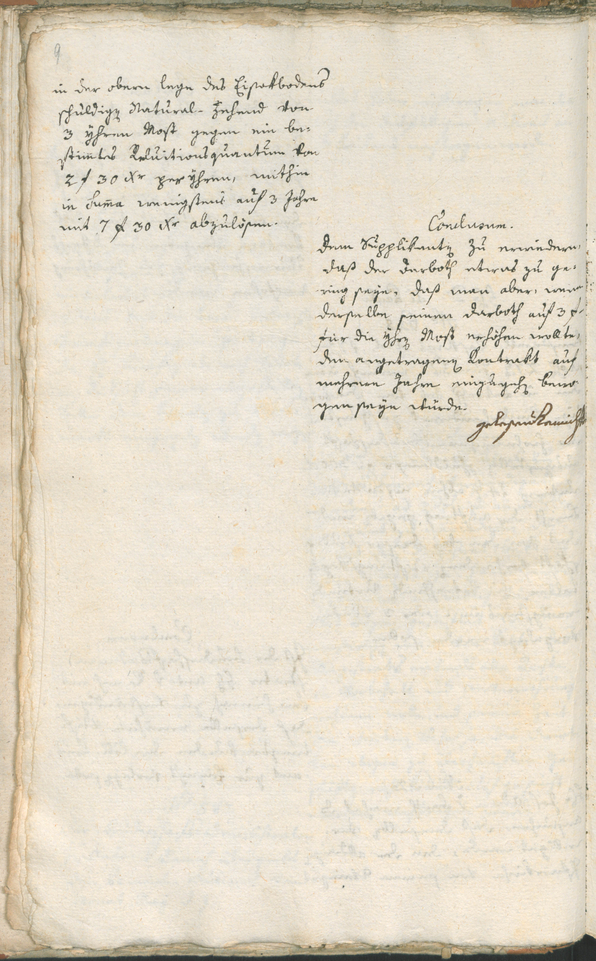 9
in der obern lege des Eisakbodens
schuldigen Natural-Zehend von
3 Yhren Most gegen ein be-
stimtes Reluitionsquantum von
2 f 30 xr per Yhren, mithin
in Suma wenigstens auf 3 Jahre
mit 7 f 30 xr abzulösen.
Conclusum.
Dem Supplikanten zu erwiedern
daß der Darboth etwas zu ge-
ring seye, daß man aber, wenn
derselbe seinen Darboth auf 3 f
für die Yhren Most erhöhen wollte,
den angetragenen Kontrakt auf
mehrere Jahre einzugehen bewo
gen seyn würde.
gelesen